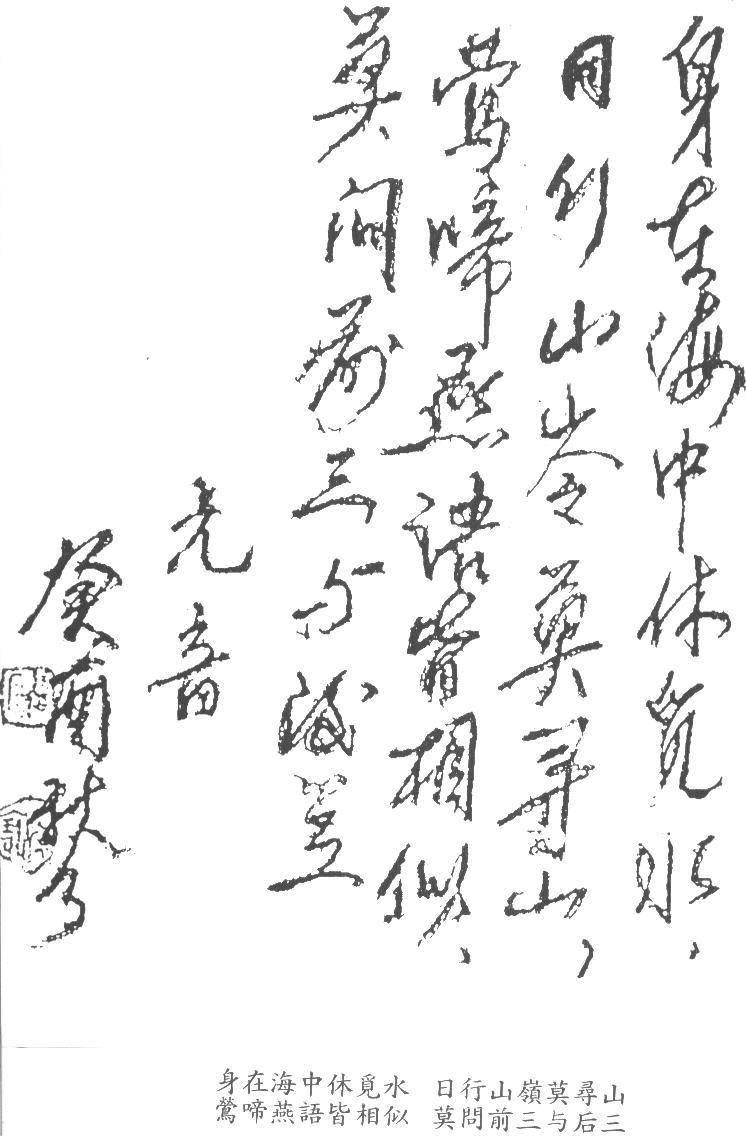 身在海中休覓水、
日行山岺莫尋山，
鶯啼燕語皆相似、
莫问前三与後三
元音
癸酉秋
身在海中休覓水 日行山嶺莫尋山
鶯啼燕語皆相似 莫問前三与后三